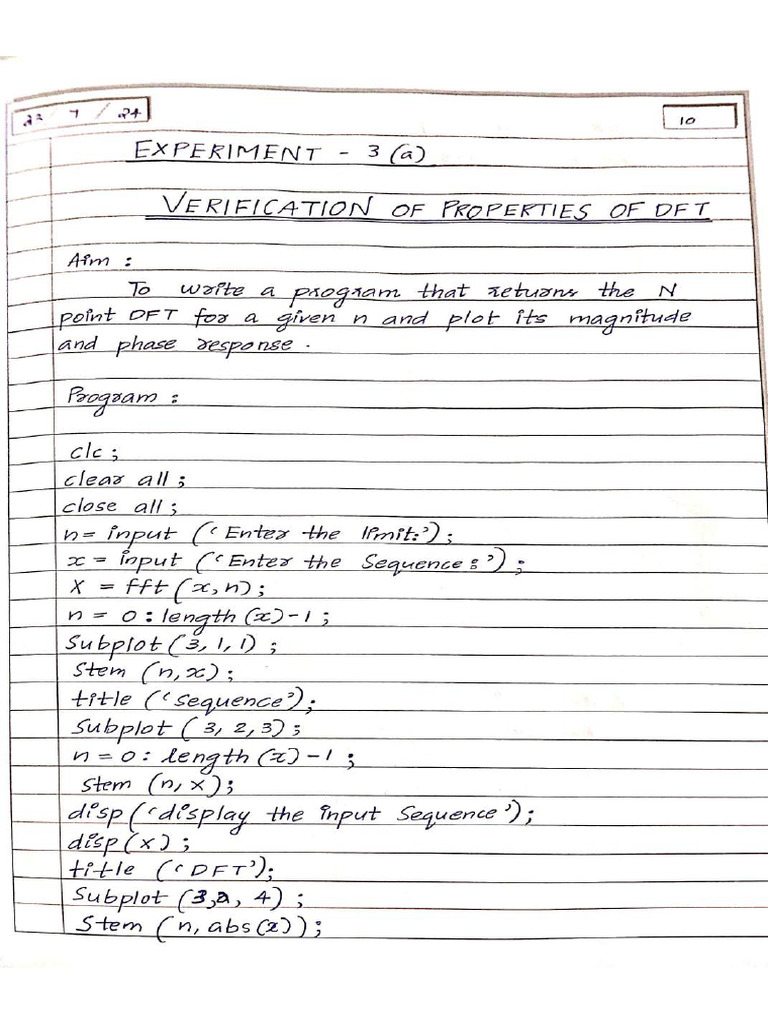 22/7/24
10
EXPERIMENT - 3 (a)
VERIFICATION OF PROPERTIES OF DFT
Aim :
To write a program that returns the N
point DFT for a given n and plot its magnitude
and phase response .
Program :
clc ;
clear all ;
close all ;
n= input (‘Enter the limit:’) ;
x = input (‘Enter the Sequence:’) ;
X = fft (x, n) ;
n = 0 : length (x) - 1 ;
Subplot (3, 1, 1) ;
Stem (n, x) ;
title (‘Sequence’) ;
Subplot (3, 2, 3) ;
n = 0 : length (x) - 1 ;
Stem (n, X) ;
disp (‘display the input Sequence’) ;
disp (X) ;
title (‘DFT’) ;
Subplot (3,2, 4) ;
Stem (n, abs (x)) ;